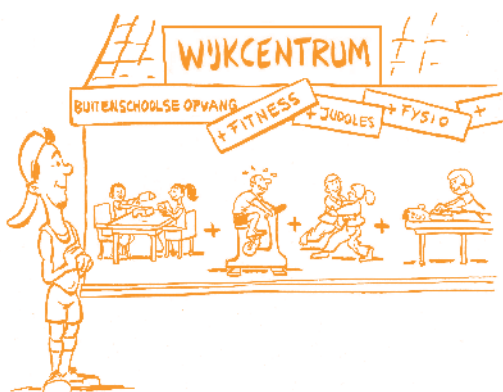 WIJKCENTRUM
BUITENSCHOOLSE OPVANG
+ FITNESS
+ JUDOLES
+ FYSIO
+
+ + +